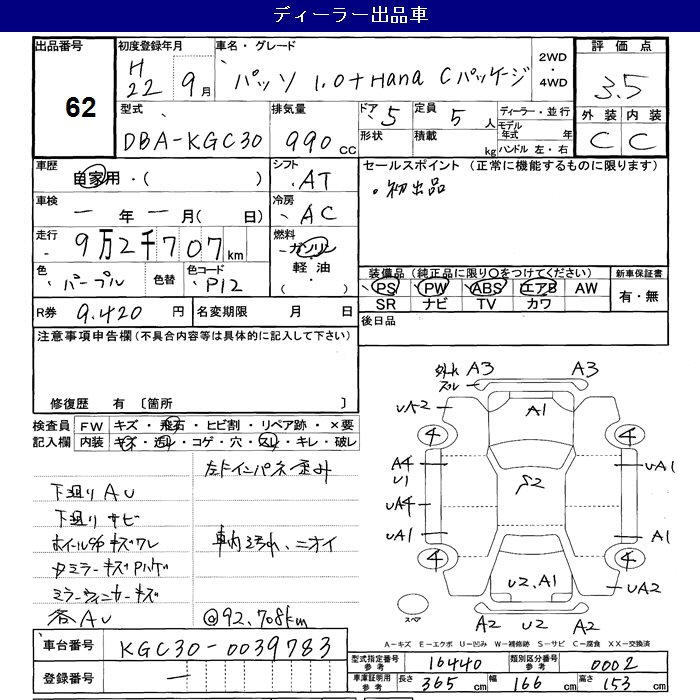 ディーラー出品車
出品番号 62
初度登録年月 H22年 9月
車名・グレード パッソ 1.0+Hana Cパッケージ
2WD・4WD
評価点 3.5
外装 内装
C C
型式 DBA-KGC30
排気量 990cc
ドア 5
形状
定員 5人
積載 kg
ディーラー・並行
モデル年式 年
ハンドル 左・右
車歴 自家用・( )
シフト AT
セールスポイント (正常に機能するものに限ります)
・初出品
車検 一年一月( 日)
冷房 AC
走行 9万2千707km
燃料 ガソリン・軽油・( )
色 パープル
色替
色コード P12
装備品 (純正品に限り○をつけてください)
PS PW ABS エアB AW
SR ナビ TV カワ
新車保証書
有・無
R券 9,420円
名変期限 月 日
後日品
注意事項申告欄(不具合内容等は具体的に記入して下さい)
修復歴 有 〔箇所 〕
検査員記入欄
FW キズ・飛石・ヒビ割・リペア跡・×要
内装 キズ・汚レ・コゲ・穴・スレ・キレ・破レ
下廻りAU
下廻りサビ
ミラーウィンカーキズ
各AU
車内汚れ、ニオイ
@92,708km
外れ
スレ
A3 A3
UA2 A1
4 4
A4 U1 S2 UA1
UA4
UA1 A1
4 4
U2.A1 UA2
スペア
A2 U2 A2
A-キズ E-エクボ U-凹み W-補修跡 S-サビ C-腐食 XX-交換済
車台番号 KGC30-0039783
登録番号 一
型式指定番号 参考 16440
類別区分番号 参考 0002
車庫証明用 参考 長さ 365cm 幅 166cm 高さ 153cm